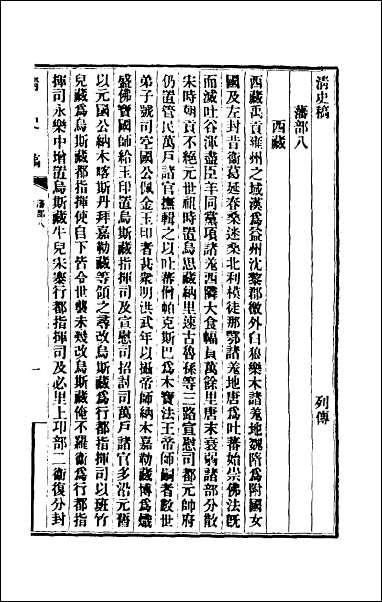 清史稿　列傳
藩部八
西藏
西藏禹貢雍州之域漢爲益州沈黎郡徼外白狼樂木諸羌地魏隋爲附國女
國及左封昔衞葛延春桑迷桑北利模徒那鄂諸羌地唐爲吐蕃始崇佛法旣
而滅吐谷渾盡臣羊同黨項諸羌西鄰大食幅員萬餘里唐末衰弱諸部分散
宋時朝貢不絕元世祖時置烏思藏納里速古魯孫等三路宣慰司都元帥府
仍置管民萬戶諸官撫輯之以吐蕃僧帕克斯巴爲木寶法王帝師嗣者數世
弟子號司空國公佩金玉印者甚衆明洪武年以攝帝師納木嘉勒藏博爲熾
盛佛寶國師給玉印置烏斯藏指揮司及宣慰司招討司萬戶諸官多沿元舊
以元國公納木喀斯丹拜嘉勒藏等領之尋改烏斯藏爲行都指揮司以班竹
兒藏爲烏斯藏都指揮使自下皆令世襲未幾改烏斯藏俺不羅衞爲行都指
揮司永樂中增置烏斯藏牛兒宋寨行都指揮司及必里上卬部二衞復分封
清史稿　藩部八　一